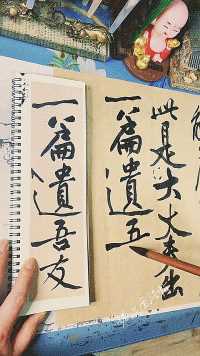 此是大丈夫出
一篇遺五
一篇遺吾友